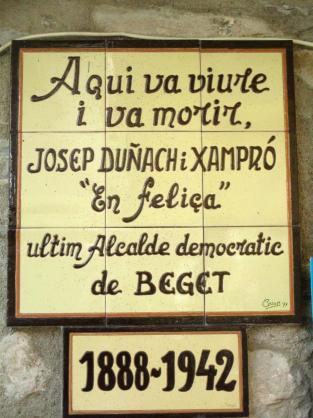 Aqui va viure
i va morir,
JOSEP DUÑACH i XAMPRÓ
"En feliça"
ultim Alcalde democratic
de BEGET
1888-1942